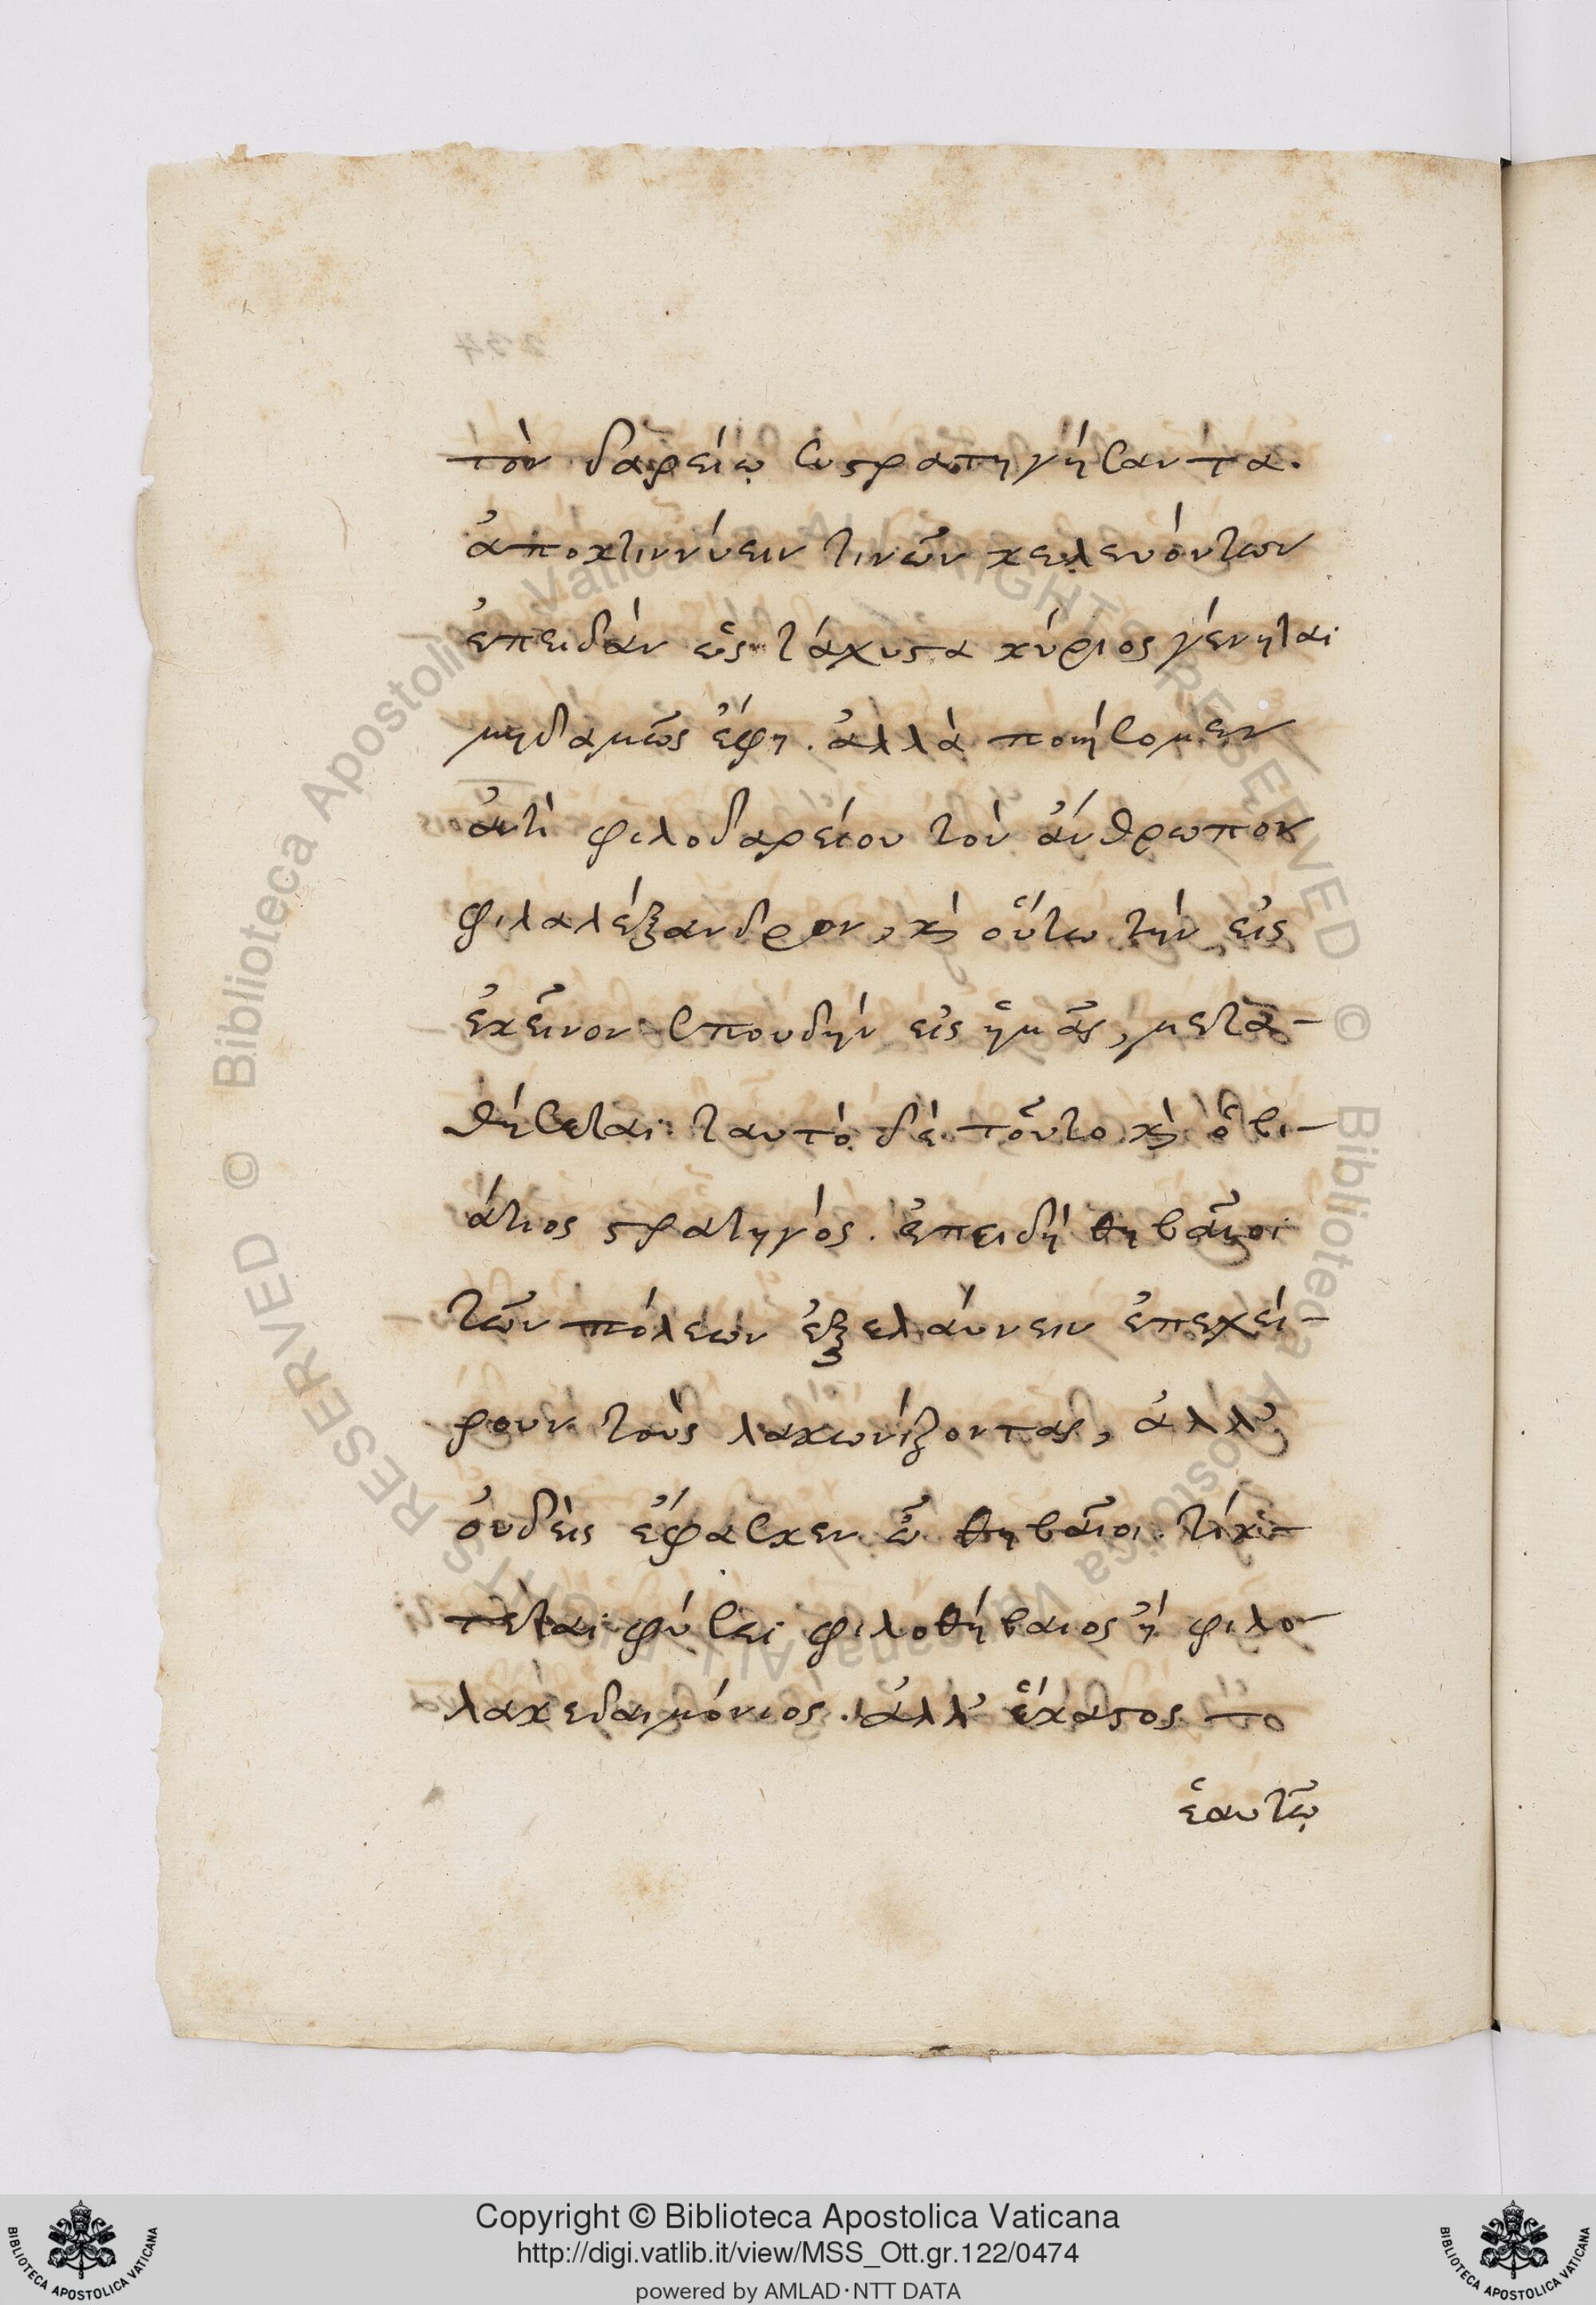 τὸν δαρείῳ συστρατηγήσαντα.
ἀποκτιννύειν τινῶν κελευόντων
ἐπειδὰν ὡς τάχιστα κύριος γένηται
μηδαμῶς ἔφη. ἀλλὰ ποιήσομεν
ἀντὶ φιλοδαρείου τὸν ἄνθρωπον
φιλαλέξανδρον, καὶ οὕτω τὴν εἰς
ἐκεῖνον σπουδὴν εἰς ἡμᾶς, μετα-
θήσεται ταυτὸ δὲ τοῦτο καὶ ὁ βι-
άτιος στρατηγός. ἐπειδὴ θηβαῖοι
τῶν πόλεων ἐξελαύνειν ἐπεχεί-
ρουν τοὺς λακωνίζοντας, ἀλλ'
οὐδεὶς ἔφασκεν ὦ θηβαῖοι τίκ-
τεται φύσει φιλοθήβαιος ἢ φιλο-
λακεδαιμόνιος. ἀλλ' ἕκαστος το
ἑαυτῷ
Copyright © Biblioteca Apostolica Vaticana
http://digi.vatlib.it/view/MSS_Ott.gr.122/0474
powered by AMLAD·NTT DATA